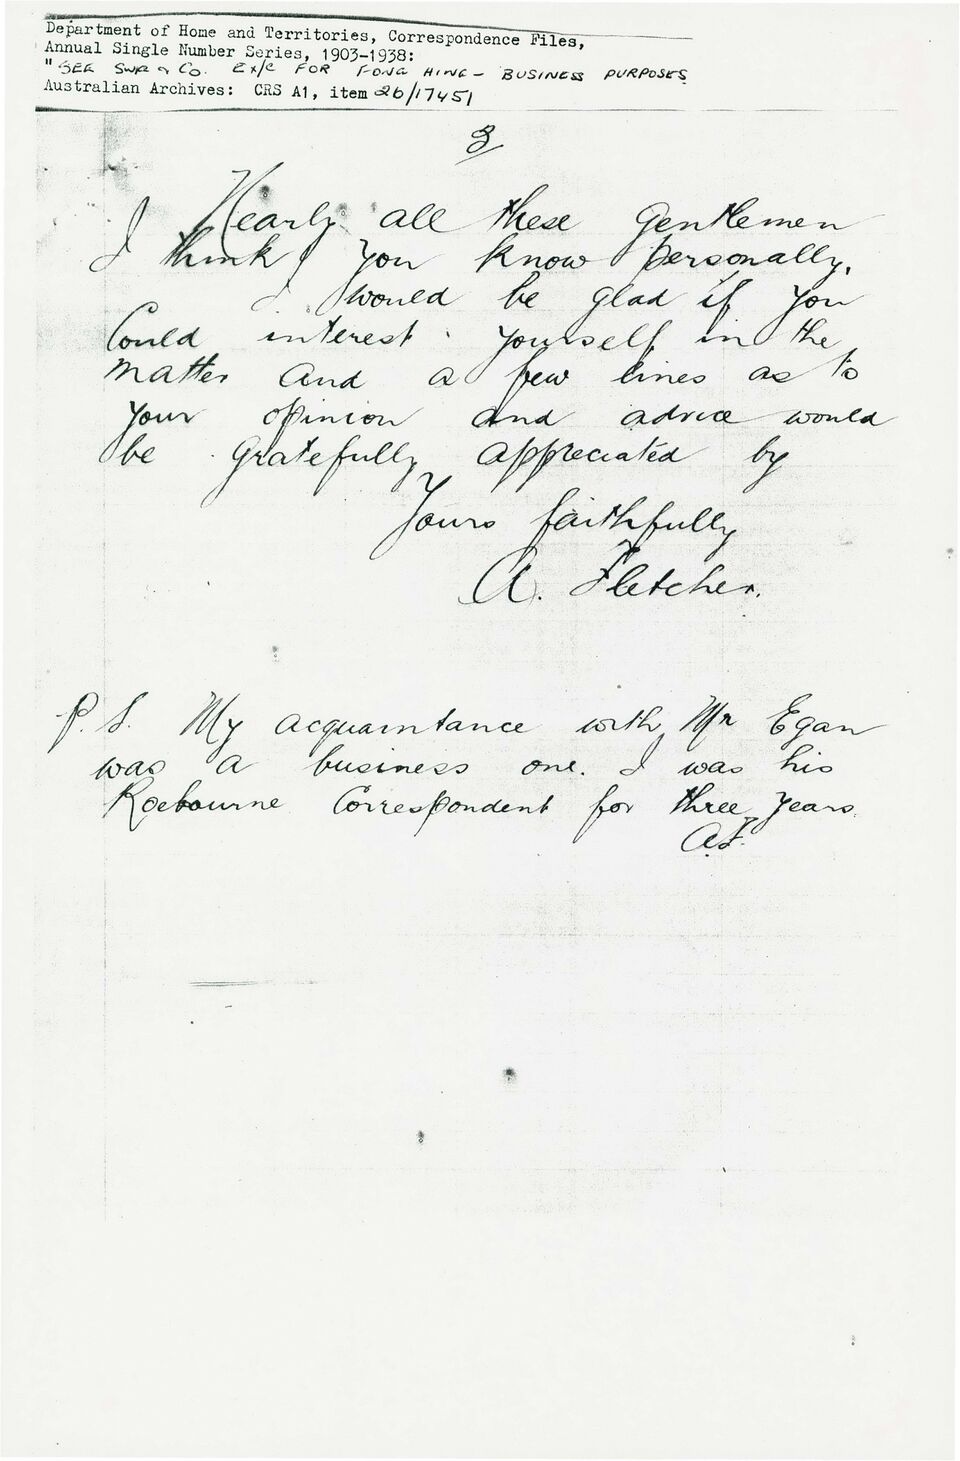 Department of Home and Territories, Correspondence Files,
Annual Single Number Series, 1903-1938:
"SEE SWR & Co. Ex/c FOR FONG HING - BUSINESS PURPOSES
Australian Archives: CRS A1, item 26/17451
3
Nearly all these Gentlemen
I think you know personally.
I would be glad if you
Could interest yourself in the
matter and a few lines as to
your opinion and advice would
be gratefully appreciated by
Yours faithfully
A. Fletcher.
P.S. My acquaintance with Mr Egan
was a business one. I was his
Roebourne Correspondent for three years.
A.F.